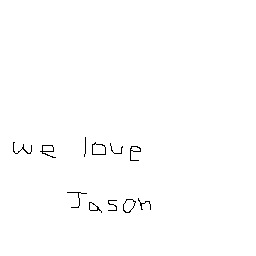 we love
Jason